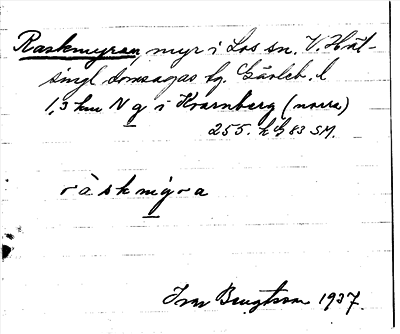 Raskmyran, myr i Los sn. V. Häl-
singl. domsagas tg. Gävleb. l.
1,3 km N g i Kvarnberg (norra)
255. h G 83 SM.
ràskmýra
Ivar Bengtsson 1937.